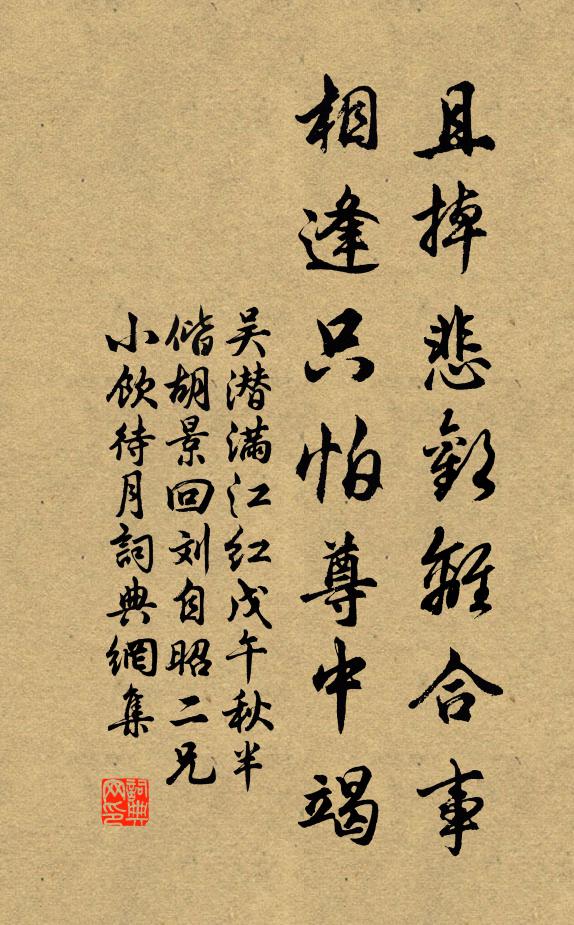 且掉悲歡離合事
相逢只怕尊中竭
吴潜满江红戊午秋半
偕胡景回刘自昭二兄
小飲待月詞典網集
詞典网印